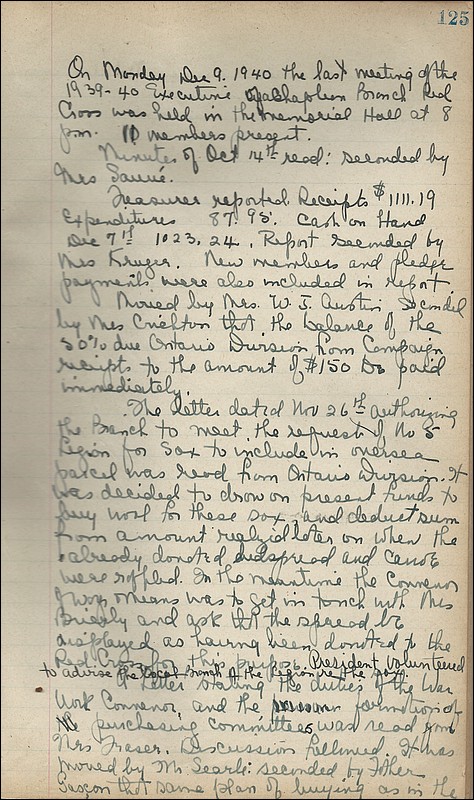 125
On Monday Dec 9. 1940 the last meeting of the
1939-40 Executive of Chapleau Branch Red
Cross was held in the Memorial Hall at 8
p.m. 10 members present.
Minutes of Oct 14th read: seconded by
Mrs Sauvé.
Treasurer reported Receipts $1111.19
Expenditures 87.95. Cash on Hand
Dec 7th 1023.24. Report seconded by
Mrs Kruger. New members and pledge
payments were also included in report.
Moved by Mrs. W. J. Austin Seconded
by Mrs Crichton that the balance of the
50% due Ontario Division from Campaign
receipts to the amount of $150 be paid
immediately.
The letter dated Nov 26th authorizing
the Branch to meet the request of No 5
Legion for Sox to include in oversea
parcel was read from Ontario Division. It
was decided to draw on present funds to
buy wool for these sox, and deduct sum
from amount realized later on when the
already donated bedspread and canoe
were raffled. In the meantime the Convenor
of ways & means was to get in touch with Mrs
Brierly and ask that the spread be
displayed as having been donated to the
Red Cross for this purpose. President volunteered
to advise the local Branch of the Legion re the sox.
A letter stating the duties of the War
Work Convenor, and the formation of
the purchasing committees was read from
Mrs Fraser. Discussion followed. It was
moved by Mr. Searle: seconded by Father
that same plan of buying as in the